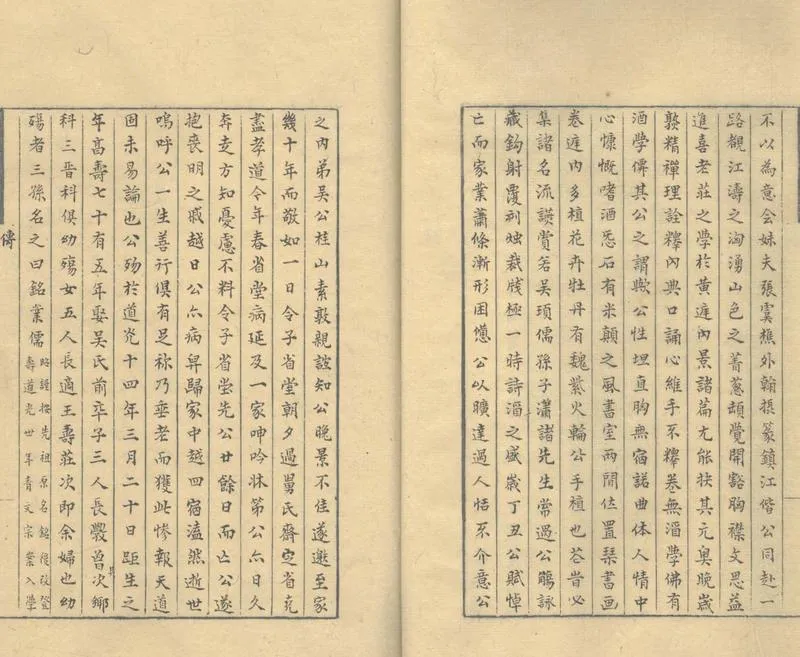 不以為意会妹夫張雲樵外翰摂篆鎮江偕公同赴一
路覩江濤之洶湧山色之菁葱頡覺開豁胸襟文思益
進喜老莊之學於黄庭內景諸篇尤能抉其元奥晚歲
熟精禪理詮釋內典口誦心維手不釋卷無滛學佛有
酒學僊其公之謂欤公性坦直胸無宿諾曲体人情中
心慷慨嗜酒愛石有米顛之風書室兩間位置琴書画
卷庭內多植花卉牡丹有魏紫火輪公手植也花昔必
集諸名流讌賞若吴頊儒孫子瀟諸先生常過公觴詠
藏鈎射覆刻燭裁牋極一時詩酒之盛歲丁丑公賦悼
亡而家業蕭條漸形困憊公以曠達過人恬不介意公
之內弟吴公桂山素敦親誼知公晚景不佳遂邀至家
幾十年而敬如一日令子省堂朝夕過舅氏齋定省克
盡孝道令年春省堂病延及一家呻吟牀第公亦日久
奔走方知憂慮不料令子省堂先公廿餘日而亡公遂
抱喪明之戚越日公亦病舁歸家中越四宿溘然逝世
嗚呼公一生善行俱有足称乃垂老而獲此惨報天道
固未易論也公殁於道光十四年三月二十日距生之
年髙壽七十有五年娶吴氏前卒子三人長燬曽次鄉
科三晋科俱幼殤女五人長適王壽莊次即余婦也幼
殤者三孫名之曰銘業儒
略謹按先祖原名銘後改登
壽道光廿年青文宗業入學
傳